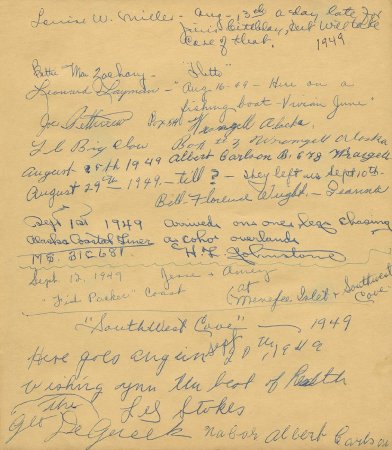 Louise W. Miller - Aug - 13th a day late for
Jims Birthday, but will take
care of that.
1949
Betta Mae Zachary - "Ditto"
Leonard Slayman - "Aug 16-49 - Here on a
fishing boat "Vivian June"
Joe Box 54 Wrangell Alaska.
Box Wrangell Alaska
August 25th 1949 Albert Carlson B. 678 Wrangell
August 29th 1949 - till ? - They left us Sept 10th -
Bill - Florence Wright - Jeanne
Sept 1st 1949 Arrived on one leg chasing
Alaska Coastal Liner as coho overlands
MS. 31C681 H. L. Johnstone
Sept. 12, 1949 Jerrie & Amey
"Fid Parker" Coast (at Menefee Inlet & Southwest Cove
"Southwest Cove" - 1949
Here goes again Sept 20th, 1949
wishing you the best of Health
Les Stokes
The
Geo De Greek nabor Albert Carlson